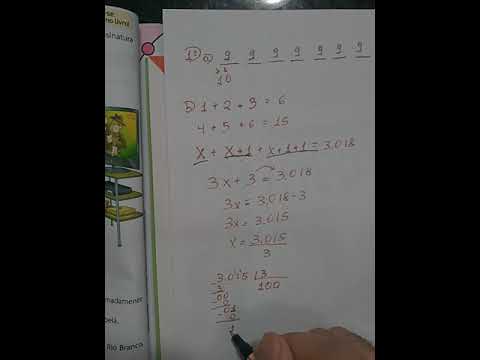 -se
no livro!
osinatura
1º a) 9 9 9 9 9 9 9
10
b) 1 + 2 + 3 = 6
4 + 5 + 6 = 15
x + x+1 + x+1+1 = 3.018
3x + 3 = 3.018
3x = 3.018-3
3x = 3.015
x = 3.015
3
3.015 3
-3 100
00
-0
01
-0
1
madamener
belá,
Rio Branco